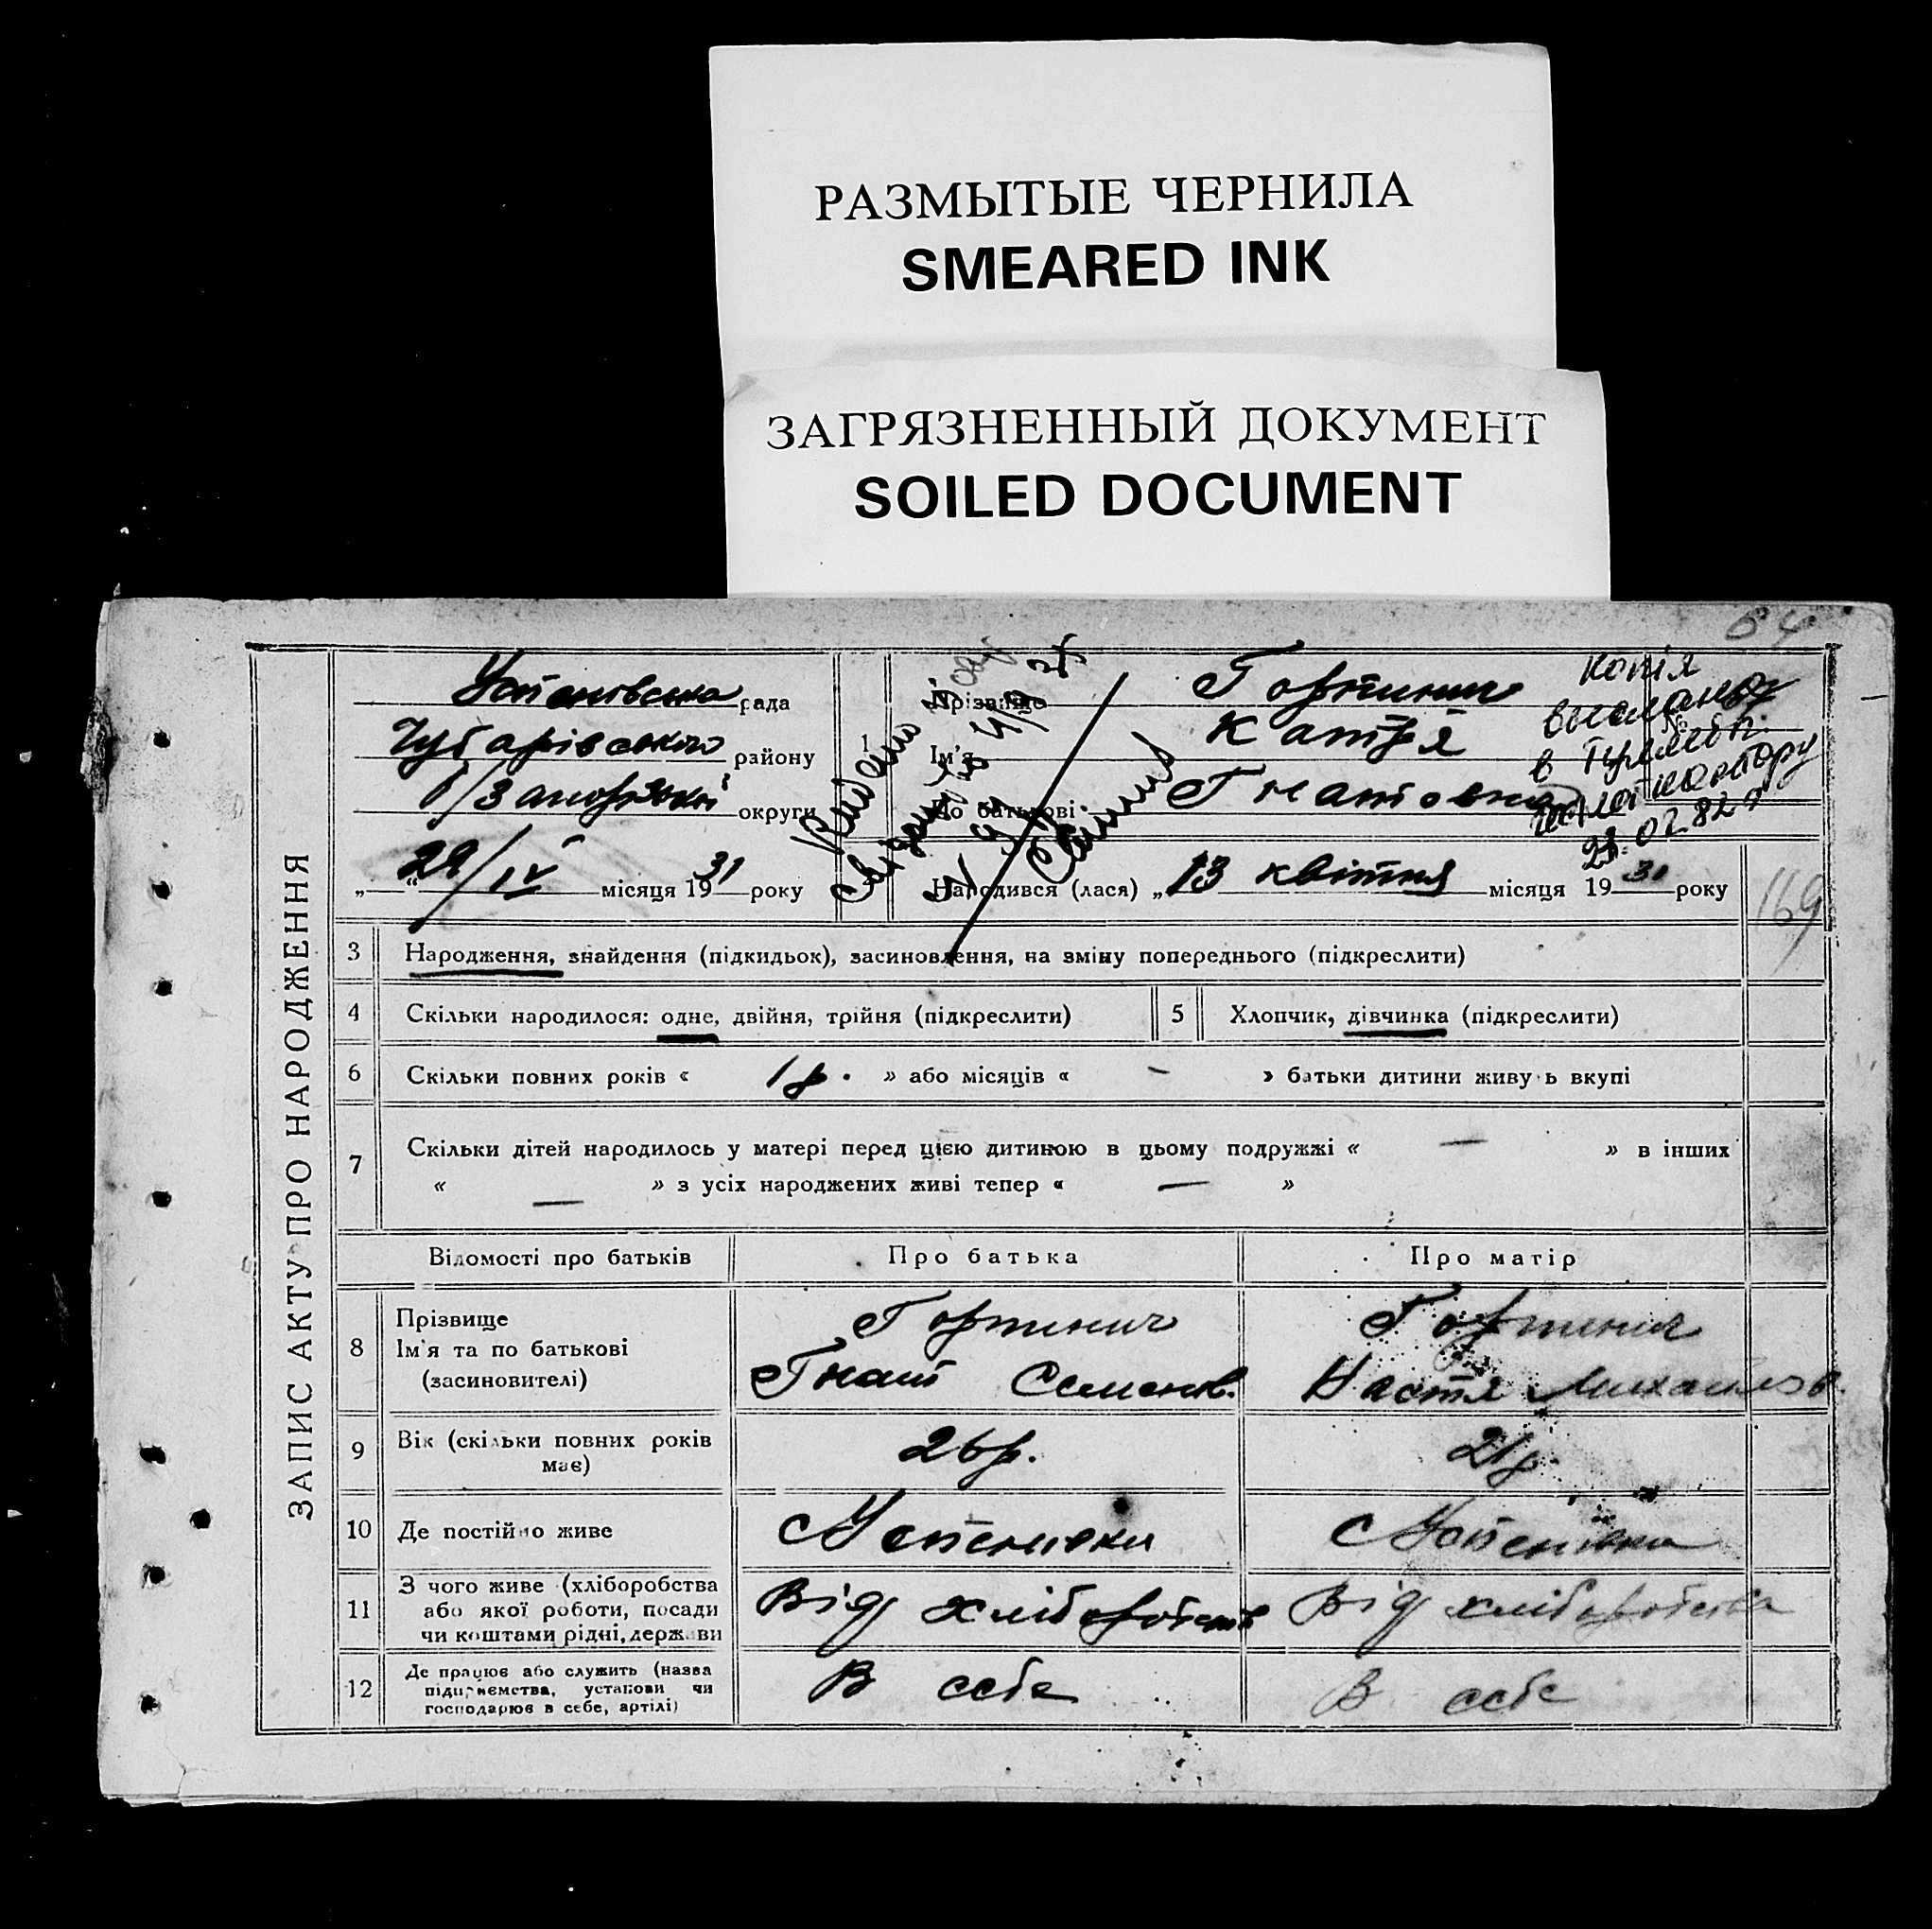 РАЗМЫТЫЕ ЧЕРНИЛА
SMEARED INK
ЗАГРЯЗНЕННЫЙ ДОКУМЕНТ
SOILED DOCUMENT
64
ЗАПИС АКТУ ПРО НАРОДЖЕННЯ
Успенівська рада
Чубарівського району
Запорізької округи
„ “ 29/IV місяця 1931 року
1
Прізвище Гортинич
Ім'я Катря
По батькові Гнатовна
Народився (лася) „13 квітня місяця 1931 року
Копія
в
контору
02.82 г
169
3 Народження, знайдення (підкидьок), засиновлення, на зміну попереднього (підкреслити)
4 Скільки народилося: одне, двійня, трійня (підкреслити)
5 Хлопчик, дівчинка (підкреслити)
6 Скільки повних років « 1 р. » або місяців « – » батьки дитини живу ь вкупі
7 Скільки дітей народилось у матері перед цією дитиною в цьому подружжі « — » в інших
« — » з усіх народжених живі тепер « — »
Відомості про батьків
Про батька
Про матір
8 Прізвище
Ім'я та по батькові
(засиновителі)
Гортинич
Гнат Семенов.
Гортинич
Настя Михайлов.
9 Вік (скільки повних років
має)
26 р.
21 р.
10 Де постійно живе
с Успенівка
с Успенівка
11 З чого живе (хліборобства
або якої роботи, посади
чи коштами рідні, держави
Від хліборобств
Від хліборобства
12 Де працює або служить (назва
підприємства, установи чи
господарює в себе, артілі)
В себе
В себе